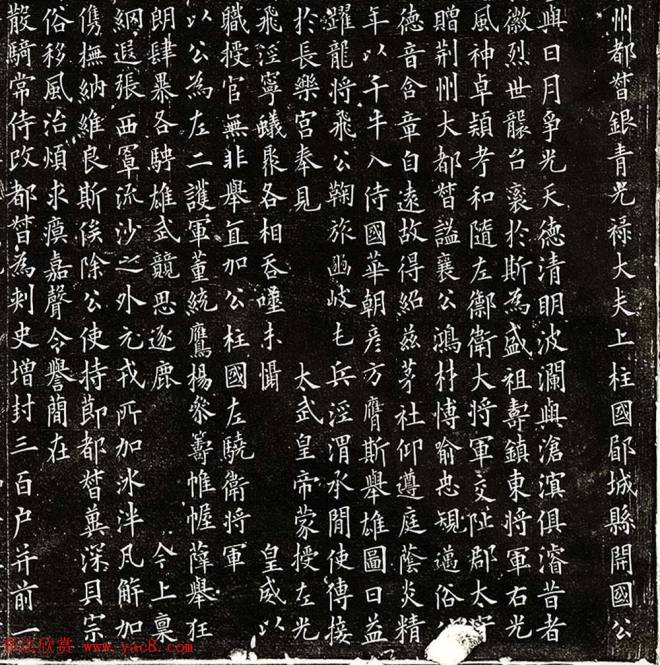 州都督銀青光祿大夫上柱國郧城縣開國公
與日月爭光天德清明波瀾與滄溟俱濬昔者
徽烈世襲台衮於斯為盛祖壽鎮東將軍右光
風神卓穎考和隨左禦衛大將軍交阯郡太守
贈荆州大都督謚襄公鴻材博喻忠規邁俗
德音含章自遠故得紹茲茅社仰遵庭蔭炎精
年以千牛入侍國華朝彦方膺斯舉雄圖日益
躍龍將飛公鞠旅豳岐乇兵涇渭承閒使傳接
於長樂宮奉見 太武皇帝蒙授左光
飛涇寧蟻聚各相吞噬未懾 皇威以
職授官無非舉宜加公柱國左驍衛將軍
以公為左二護軍董統鷹揚叅籌帷幄薛舉狂
朗肆暴各騁雄武競思逐鹿 今上稟
綱遐張西罩流沙之外元戎所加冰泮凡解加
儁撫納維良斯俟除公使持節都督蘷深貝宗
俗移風治煩求瘼嘉聲令譽蕳在
散騎常侍改都督為刾史增封三百户并前一
書法欣赏 www.yac8.com